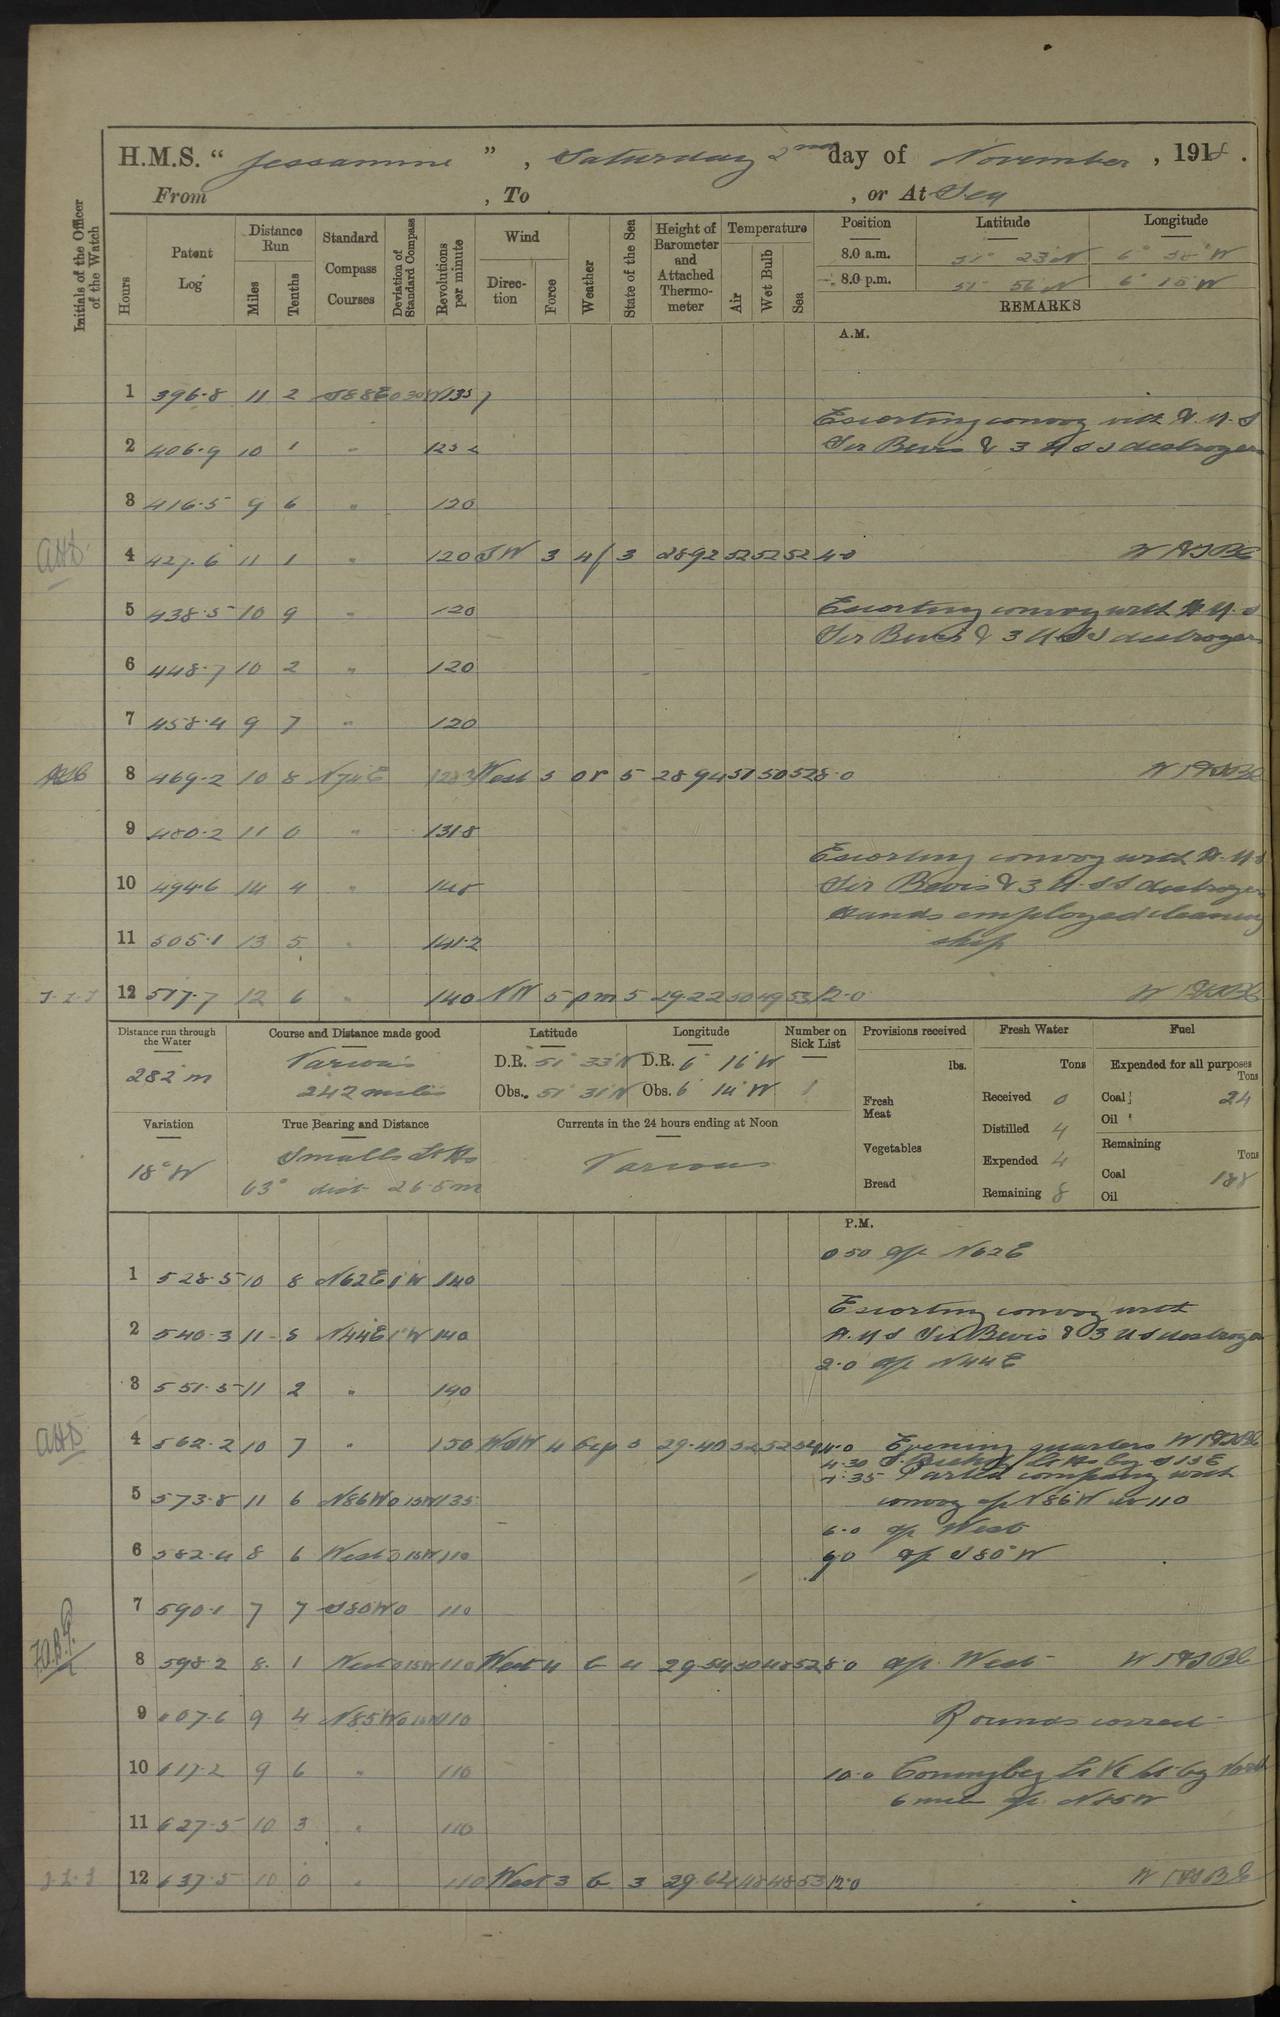 H.M.S. " Jessamine ", Saturday 2nd day of November, 1918.
From , To , or At Sea
Initials of the Officer of the Watch
Hours
Patent Log
Distance Run
Miles
Tenths
Standard Compass Courses
Deviation of Standard Compass
Revolutions per minute
Wind
Direction
Force
Weather
State of the Sea
Height of Barometer and Attached Thermometer
Temperature
Air
Wet Bulb
Sea
Position Latitude Longitude
8.0 a.m. 51° 23' N 6° W
8.0 p.m. 51° 56' N 6° 15' W
REMARKS
A.M.
1 396.8 11 2 S88E 0 30W 135
Escorting convoy with H.M.S
2 406.9 10 1 " Sir Bevis & 3 U S S destroyers
3 416.5 9 6 " 120
4 427.6 11 1 " 120 SW 3 3 28.92 52 52 52 4.0
5 438.5 10 9 " 120 Escorting convoy with H.M.S
Sir Bevis & 3 U S S destroyers
6 448.7 10 2 " 120
7 458.4 9 7 " 120
8 469.2 10 8 N74E West 5 or 5 28.94 51 50 52 8.0
9 480.2 11 0 " 131.8
Escorting convoy with H.M.S
10 494.6 14 4 " Sir Bevis & 3 U.S.S destroyers
Hands employed cleaning
11 505.1 13 5 " 141.2 ship
12 517.7 12 6 " 140 NW 5 5 29.22 50 49 53 12.0
Distance run through the Water
282 m
Course and Distance made good
Various
242 miles
Latitude
D.R. 51° 33' N
Obs. 51° 31' N
Longitude
D.R. 6° 16' W
Obs. 6° 14' W
Number on Sick List
1
Provisions received
lbs.
Fresh Meat
Vegetables
Bread
Fresh Water
Tons
Received 0
Distilled 4
Expended 4
Remaining 8
Fuel
Expended for all purposes
Tons
Coal 24
Oil
Remaining
Tons
Coal 188
Oil
Variation
18° W
True Bearing and Distance
Smalls Lt Ho
63° dist 26.5 m
Currents in the 24 hours ending at Noon
Various
P.M.
0 50 a/c N62E
1 528.5 10 8 N62E 1°W 140
Escorting convoy with
2 540.3 11 N44E 1°W 140 H.M.S Sir Bevis & 3 U S destroyers
2.0 a/c N44E
3 551.5 11 2 " 140
4 562.2 10 7 " 150 WSW 4 29.40 52 52 4.0 Evening quarters
4.30 Lt Ho by S15E
4.35 Parted company with
5 573.8 11 6 N86W 0 15W 135 convoy a/c N86W 110
6.0 a/c West
6 582.4 8 6 West 0 15W 110 a/c S80°W
7 590.1 7 7 S80W 0 110
8 598.2 8 1 West 0 15W 110 West 4 b 4 29.54 50 48 52 8.0 a/c West
9 607.6 9 4 N85W 110 Rounds correct
10 617.2 9 6 " 110 10.0 Coningbeg Lt V by North
6 miles a/c
11 627.5 10 3 " 110
12 637.5 10 0 " 110 West 3 b 3 29.64 48 48 53 12.0